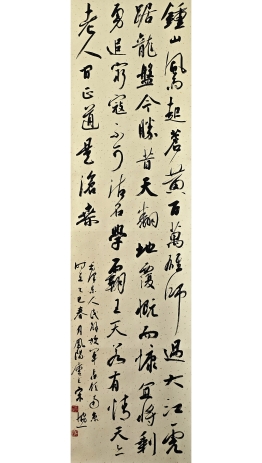 鍾山風起蒼黃百萬雄師過大江虎
踞龍盤今勝昔天翻地覆慨而慷宜將剩
勇追窮寇不可沽名學霸王天若有情天亦
老人間正道是滄桑
毛澤東人民解放軍占領南京
時在乙巳春月鳳陽